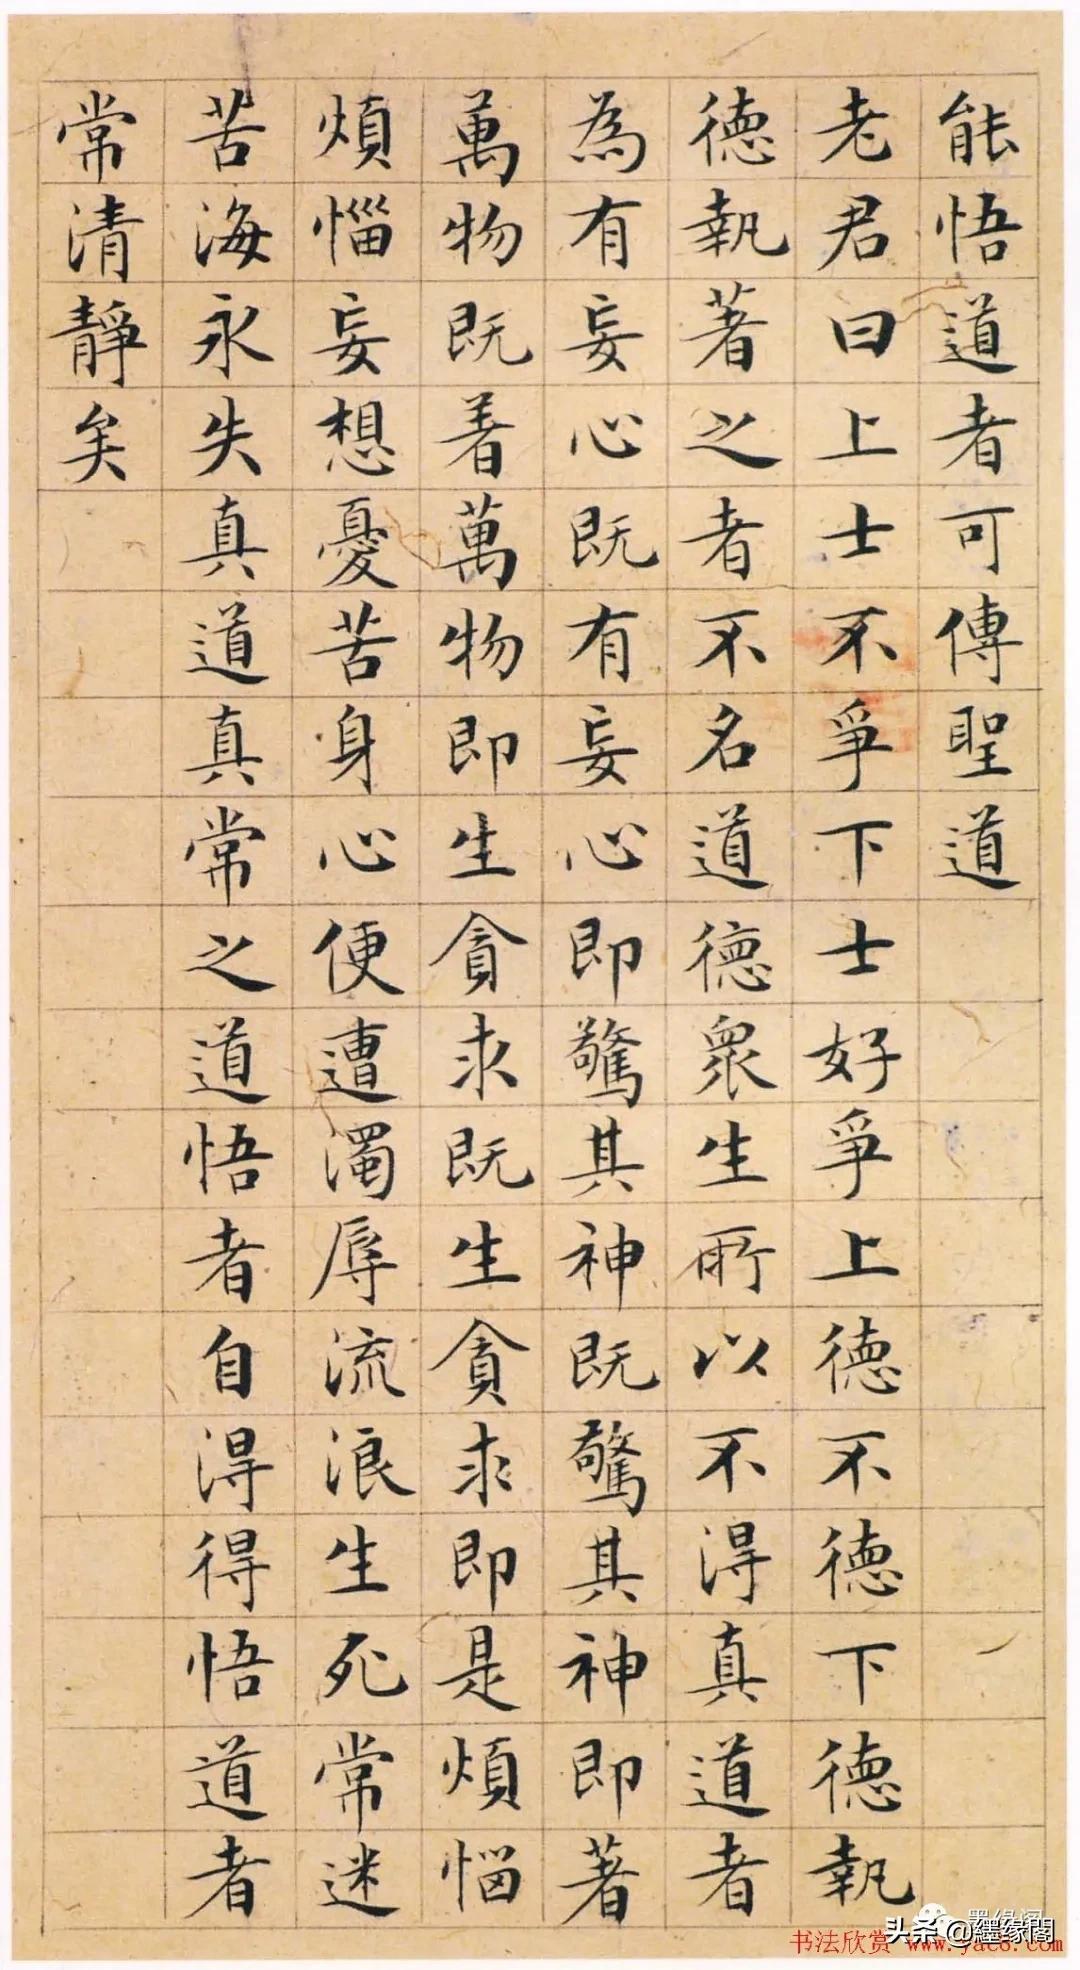 能悟道者可傳聖道
老君曰上士不爭下士好爭上德不德下德執
德執著之者不名道德衆生所以不得真道者
為有妄心既有妄心即驚其神既驚其神即著
萬物既着萬物即生貪求既生貪求即是煩惱
煩惱妄想憂苦身心便遭濁辱流浪生死常迷
苦海永失真道真常之道悟者自得得悟道者
常清靜矣
墨缘阁
头条@繧缘阁
书法欣赏 www.yac8.com